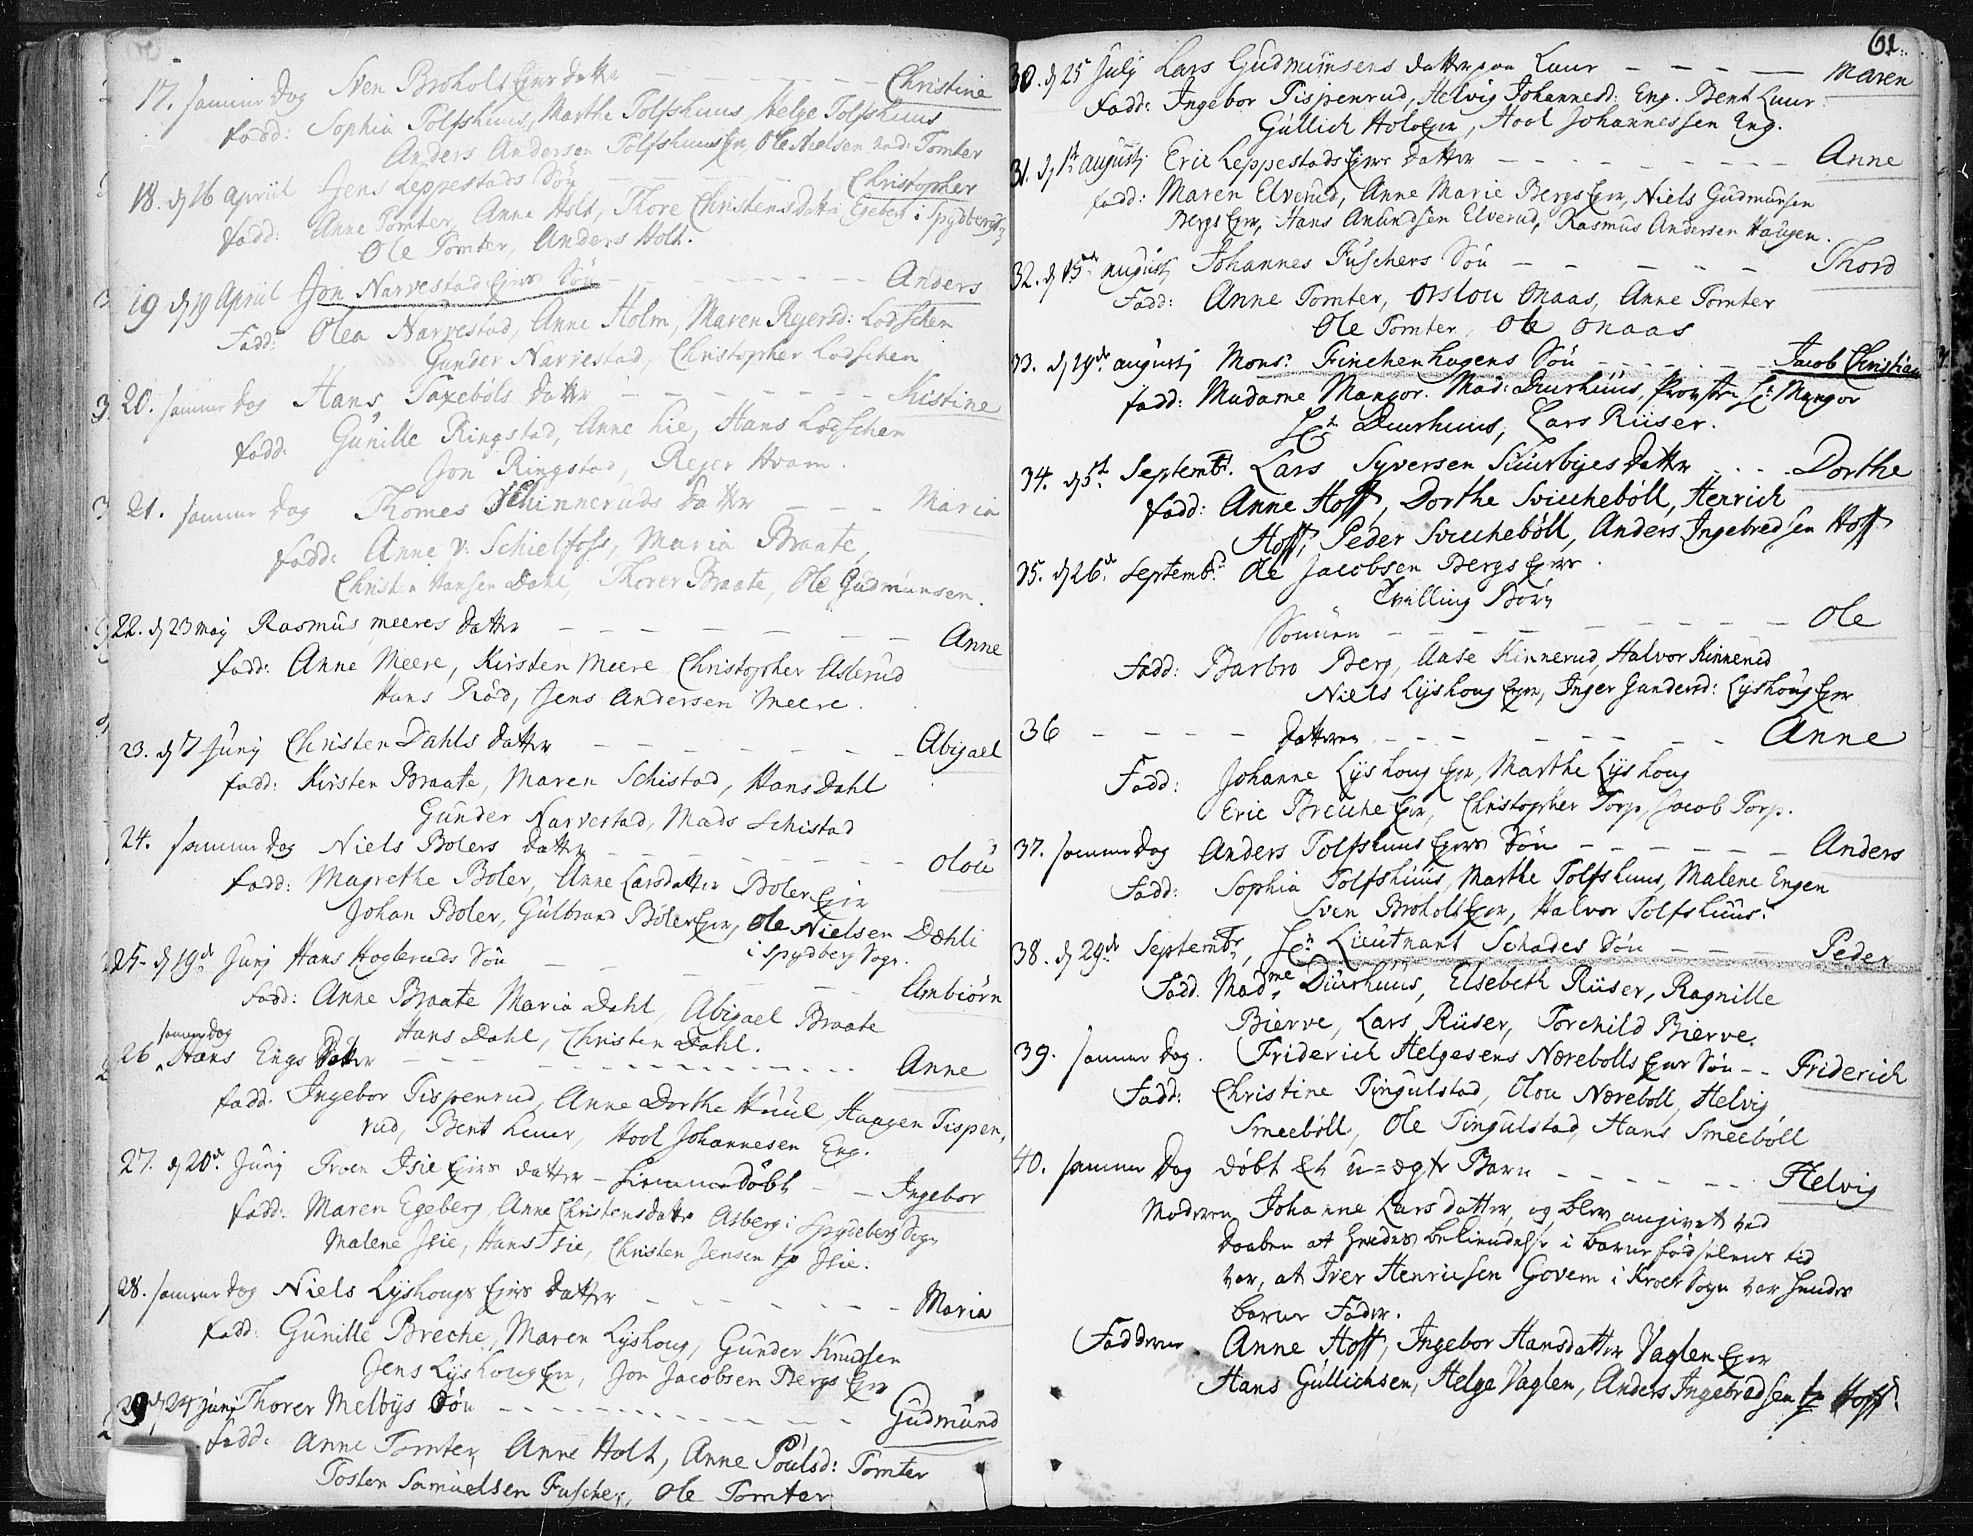 17. samme Dag Sven Broholt Ejers datter - - - - Christine
fadd: Sophia Tolfshuus, Marthe Tolfshuus, Helge Tolfshuus
Anders Andersen Tolfshuus Ejer Ole Nielsen ved: Tomter
18. d 26 Apriil Jens Leppestads Søn - - - - Christopher
fadd: Anne Tomter, Anna Holt, Thore Christensdatter Egeberg i Spydberg
Ole Tomter, Anders Holt.
19 d 19 Apriil Jon Narvestad Ejers Søn - - - - Anders
Fadd: Olea Narvestad, Anne Holm, Maren Rejersd: Lodschen
Gunder Narvestad, Christopher Lodschen
20. samme Dag Hans Saxebøls Datter - - - - Kistine
fadd: Gunille Ringstad, Anne Lie, Hans Lodschen
Jon Ringstad, Rejer Hvam.
21. samme Dag Thomes Schinneruds Datter - - - Maria
fadd: Anne v: Schielfoss, Maria Braate,
Christen Hansen Dahl, Thorer Braate, Ole Gudmunsen.
22. d 23 maj Rasmus meeres Datter - - - - Anne
fadd: Anne Meere, Kirsten Meere Christopher Aslerud
Hans Rød, Jens Andersen Meere.
23. d 7 Junj Christen Dahls Datter - - - - Abigael
fadd: Kirsten Braate, Maren Schistad, Hans Dahl
Gunder Narvestad, Mads Schistad
24. samme Dag Niels Bolers Datter - - - - Olou
fadd: Magrethe Boler, Anne Larsdatter Boler Ejer
Johan Boler, Gulbrand Böler Ejer, Ole Nielsen Dæhli
i Spydberg Sogn.
25. d 19de Junj Hans Hogleruds Søn - - - - Ambiørn
fadd: Anne Braate Maria Dahl, Abigael Braate
Hans Dahl, Christen Dahl.
samme Dag
26 Hans Engs Datter - - - - Anne
fadd: Ingebor Tispenrud, Anne Dorthe Huul, Haagen Tispen,
rud, Bent Luur, Hool Johannesen Eng.
27. d 20de Junj Troen Isie Ejers datter - hiemmedøbt - - Ingebor
fadd: Maren Egeberg, Anne Christensdatter Asberg i Spydeberg Sogn
Malene Isie, Hans Isie, Christen Jensen Isie.
28. samme Dag Niels Lyshougs Ejers Datter - - - - Maria
fadd: Gunille Breche, Maren Lyshoug, Gunder Knudsen
Jens Lyshoug Ejer, Jon Jacobsen Bergs Ejer
29 d 24 Junj Thorer Melbys Søn - - - - Gudmund
fadd: Anne Tomter, Anne Holt, Anne Poulsd: Tomter
Tosten Samuelsen Fuscher, Ole Tomter
61.
30. d 25 Julj Lars Gudmunsens datter paa Luur - - - - Maren
fadd: Ingebor Tispenrud, Helvig Johannesd: Eng. Bent Luur
Gullich Holo Ejer, Hool Johannessen Eng.
31. d 1ste augustj Eric Leppestads Ejers Datter - - - - Anne
fadd: Maren Elverud, Anne Marie Bergs Ejer, Niels Gudmunsen
Bergs Ejer, Hans Amundsen Elverud, Rasmus Andersen Haugen.
32. d 15de augustj Johannes Fuschers Søn - - - - Thord
Fadd: Anne Tomter, Orslou Onaas, Anne Tomter
Ole Tomter, Ole Onaas
33. d 19de augustj Mons: Finchenhagens Søn - - - - Jacob Christian
fadd: Madame Mangor. Mad: Duurhuus, Provsten Hr: Mangor
Hr Duurhuus, Lars Riiser.
34. d 5te Septembr. Lars Syversen Skuurbyes Datter . . . . Dorthe
fadd: Anne Hoff, Dorthe Svicchebøll, Henrich
Hoff, Peder Svicchebøll, Anders Ingebredsen Hoff
35. d 26de Septembr Ole Jacobsen Bergs Ejer.
Tvilling Børn
Sønnen - - - - Ole
Fadd: Barbro Berg, Aase Kinnerud, Halvor Kinnerud
Niels Lyshoug Ejer, Inger Gundersd: Lyshoug Ejer
36 - - - - Datteren - - - - Anne
Fadd: Johanne Lyshoug Ejer, Marthe Lyshoug
Eric Brecche Ejer, Christopher Torp, Jacob Torp.
37. samme Dag Anders Tolfshuus Ejers Søn - - - - Anders
Fadd: Sophia Tolfshuus, Marthe Tolfshuus, Malene Engen
Sven Broholt Ejer, Halvor Tolfshuus.
38. d 29de Septembr, Hr Lieutnant Schades Søn - - - Peder
Fadd. Madme Duurhuus, Elsebeth Riiser, Ragnille
Bierve, Lars Riiser, Torchild Bierve.
39. samme Dag. Friderich Helgesens Nærebolls Ejer Søn - - Friderich
Fadd: Christine Tingulstad, Olou Nærebøll, Helvig
Smeebøll, Ole Tingulstad, Hans Smeebøll
40. samme Dag døbt Et u=ægte Barn - - - - Helvig
Moderen Johanne Larsdatter, og blev angivet ved
Daaben at hendes bekiendelse i barnefødselens tid
var, at Iver Henricsen Govem i Kroer Sogn var hendes
barns Fader.
Fadderne. Anne Hoff, Ingebor Hansdatter Vaglen Ejer
Hans Gullichsen, Helge Vaglen, Anders Ingebredsen Hoff.